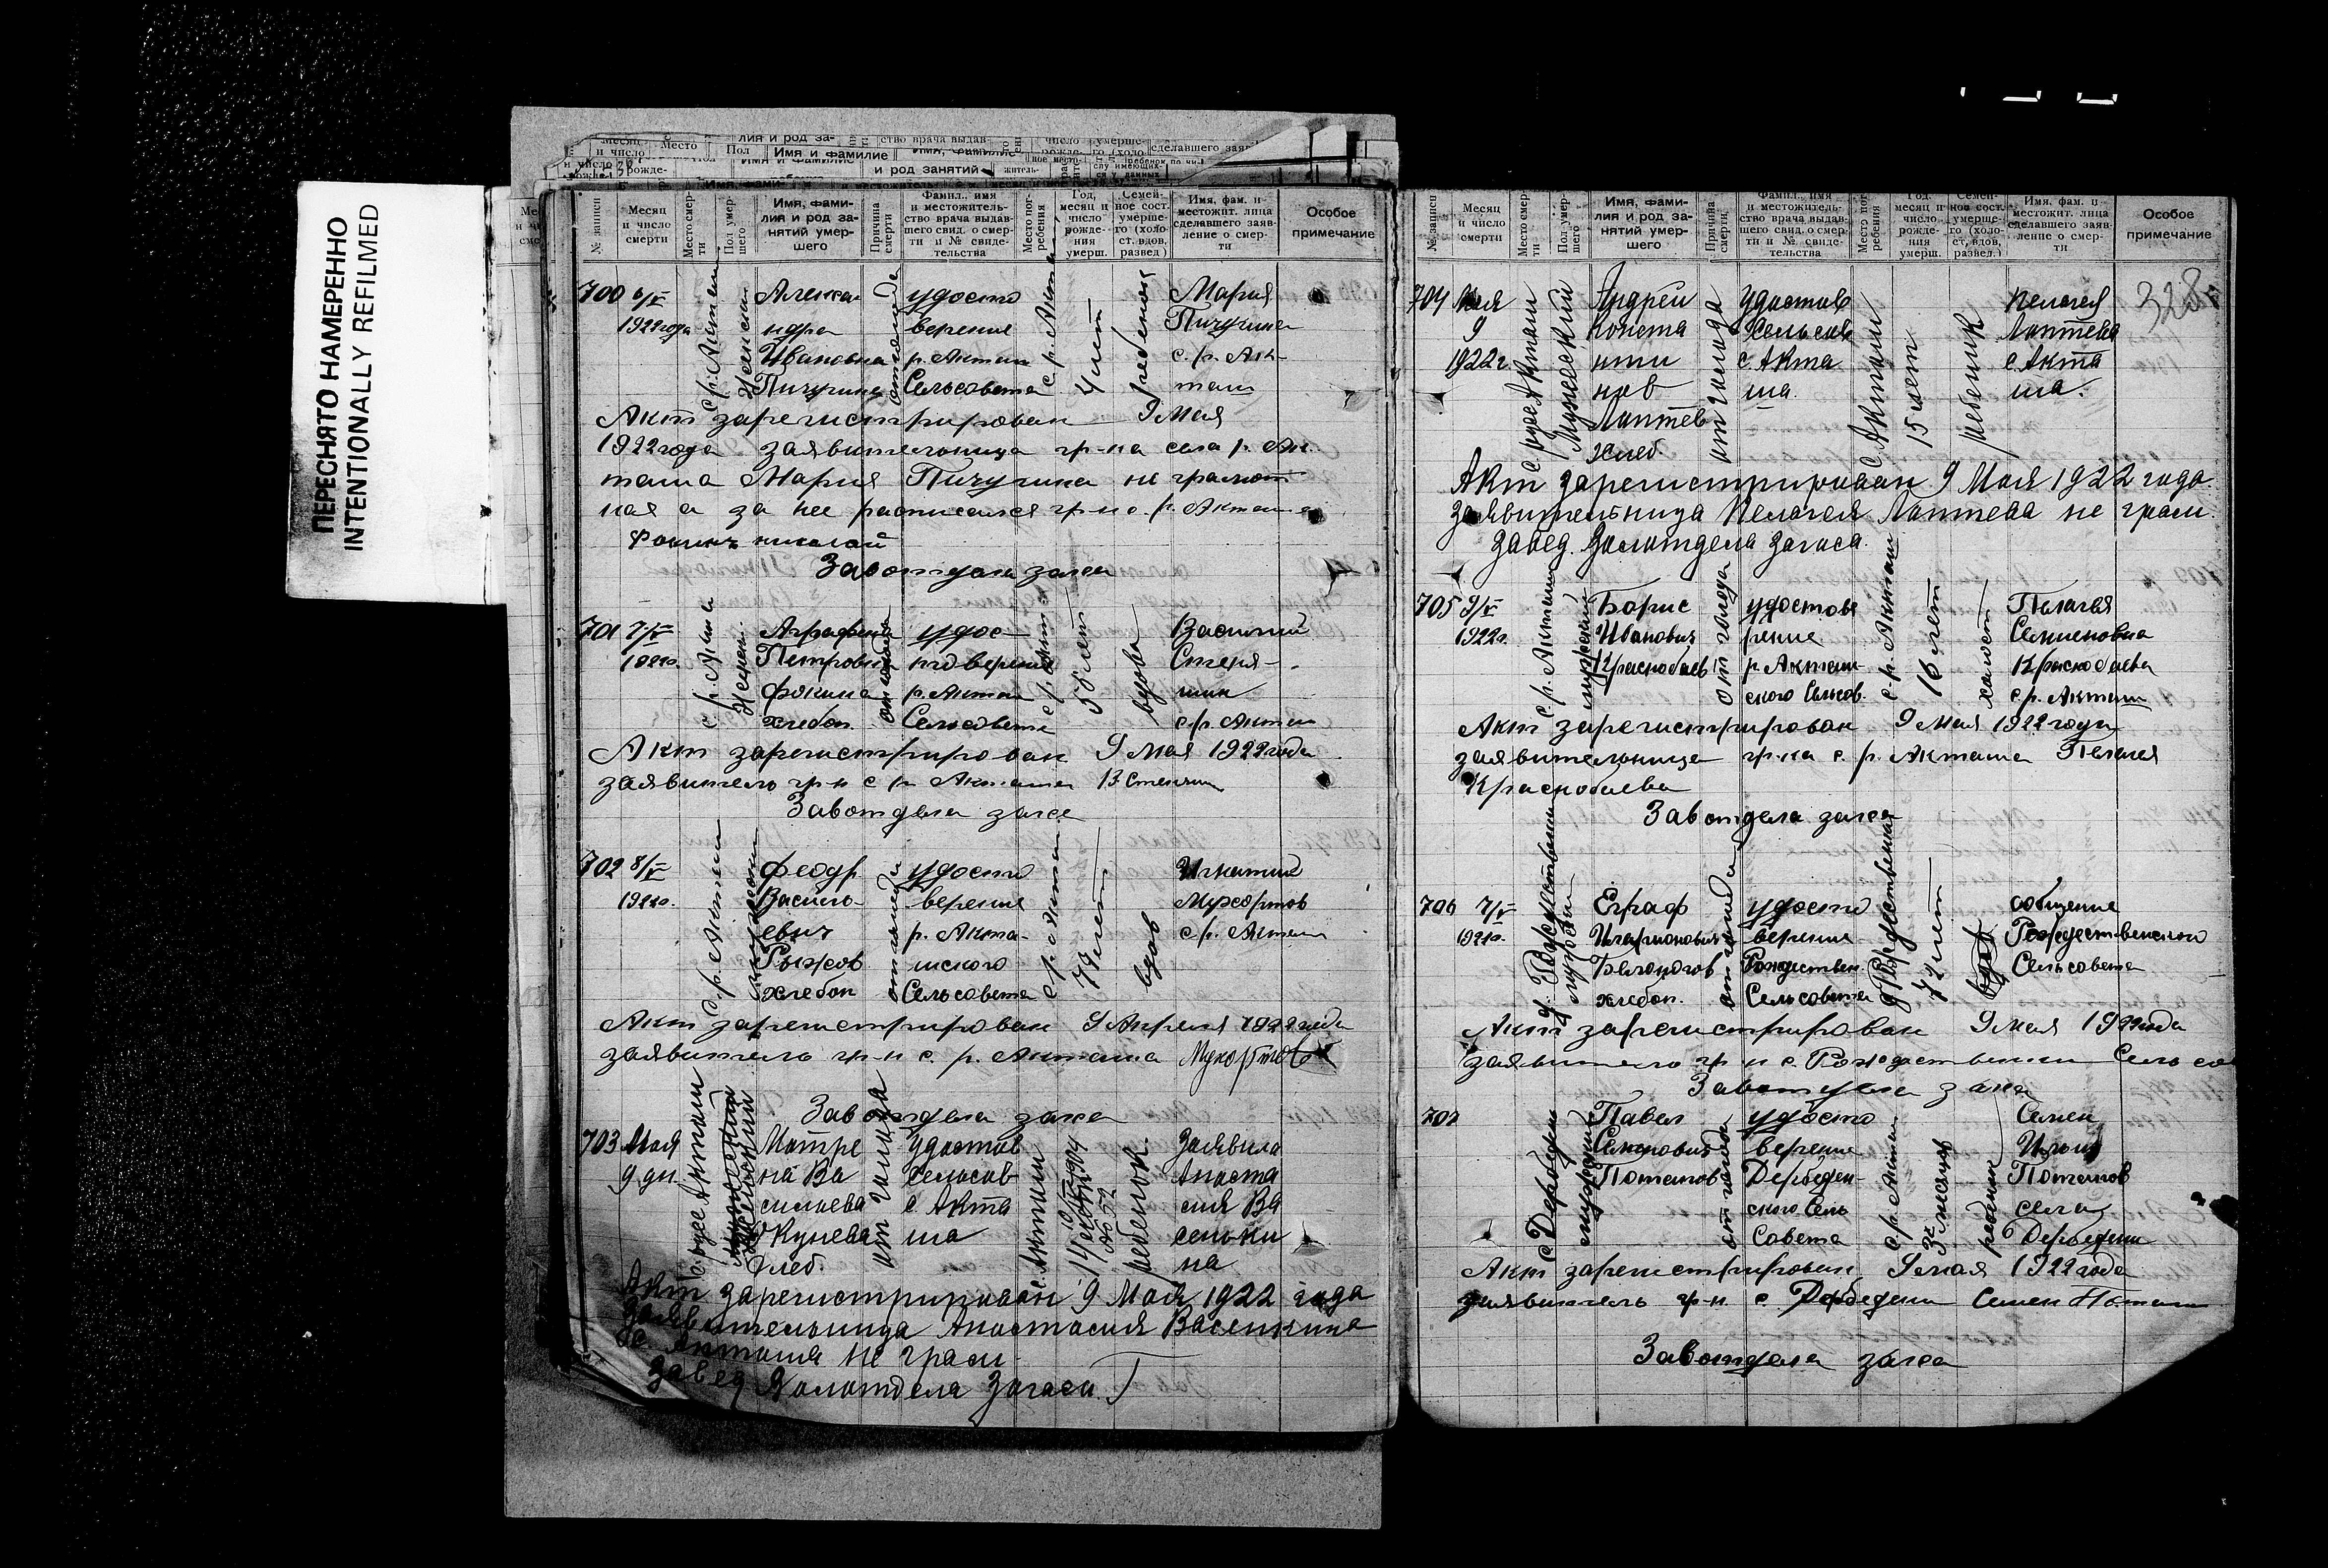 ПЕРЕСНЯТО НАМЕРЕННО
INTENTIONALLY REFILMED
№ записи
Месяц и число смерти
Место смерти
Пол умершего
Имя, фамилия и род занятий умершего
Причина смерти
Фамил., имя и местожительство врача выдавшего свид. о смерти и № свидетельства
Место погребения
Год, месяц и число рождения умерш.
Семейное сост. умершего (холост, вдов, развед.)
Имя, фам. и местожит. лица сделавшего заявление о смерти
Особое примечание
700 6/V 1922 года
с. р. Акташ
Женский
Александра Ивановна Пичугина
от голода
удостоверение р. Акташ Сельсовета
с. р. Акташ
4 лет
ребенок
Мария Пичугина с. р. Акташ
Акт зарегистрирован 9 Мая
1922 года заявительница гр-ка села р. Ак-
таша Мария Пичугина не грамот
ная а за нее расписался гр-н с. р. Акташа
Фокин николай
Завотдела загса
701 7/V 1922г.
с. р. Акташ
Женск.
Аграфена Петровна Фокина хлебоп.
от голода
удостоверение р. Акташ Сельсовета
с. р. Акташ
58 лет
вдова
Василий с. р. Акташ
Акт зарегистрирован 9 Мая 1922 года
заявитель гр-н с. р. Акташа
Завотдела загса
702 8/V 1922г.
с. р. Акташ
мужской
Феодр Васильевич Рыжов хлебоп
от голода
удостоверение р. Акташского Сельсовета
с. р. Акташ
вдов
Игнатий Мухортов с. р. Акташ
Акт зарегистрирован 9 Апреля 1922 года
заявитель гр-н с. р. Акташа Мухортов
Завотдела загса
703 Мая 9 дн.
с. русс Акташ
Женский
Матрена Васильева Окунева хлеб.
от голода
Удостов сельсов с Акташа
с. Акташ
ребенок
Заявила Анастасия Васенькина
Акт зарегистрирован 9 Мая 1922 года
Заявительница Анастасия Васенкина
с Акташа не грам
Завед Волотдела Загса
№ записи
Месяц и число смерти
Место смерти
Пол умершего
Имя, фамилия и род занятий умершего
Причина смерти
Фамил., имя и местожительство врача выдавшего свид. о смерти и № свидетельства
Место погребения
Год, месяц и число рождения умерш.
Семейное сост. умершего (холост, вдов, развед.)
Имя, фам. и местожит. лица сделавшего заявление о смерти
Особое примечание
328
704 Мая 9 1922 г
с русс Акташ
Мужеский
Андрей Константинов Лаптев хлеб.
от голода
Удостов Сельсов с. Акташа.
с. Акташ
15 лет
ребенок
Пелагея Лаптева с Акташа.
Акт зарегистрирован 9 Мая 1922 года
Заявительница Пелагея Лаптева не грам.
Завед. Волотдела Загса.
705 9/V 1922г.
с. р. Акташ
мужской
Борис Иванович Краснобаев
от голода
удостоверение р. Акташского Сельсов.
с. р. Акташ
16 лет
холост
Пелагея Семеновна Краснобаева с. р. Акташ
Акт зарегистрирован 9 Мая 1922 года
заявительница гр-ка с. р. Акташа Пелагея
Краснобаева
Завотдела загса
706 7/V 1922г.
мужской
Еграф Иларионович хлебоп.
от голода
удостоверение Рождествен. Сельсовета
72 лет
вдов
сообщение Рождественского Сельсовета
Акт зарегистрирован 9 мая 1922 года
заявитель гр-н с. Рождествен Сельсо
Завотдела загса
707
с Дербедень
мужской
Павел Семенович Потапов
от голода
удостоверение Дербеденского Сельсовета
с. р. Акташ
ребенок
Семен Потапов села Дербедень
Акт зарегистрирован 9 мая 1922 года
заявитель гр-н с. Дербедень Семен Потапов
Завотдела загса